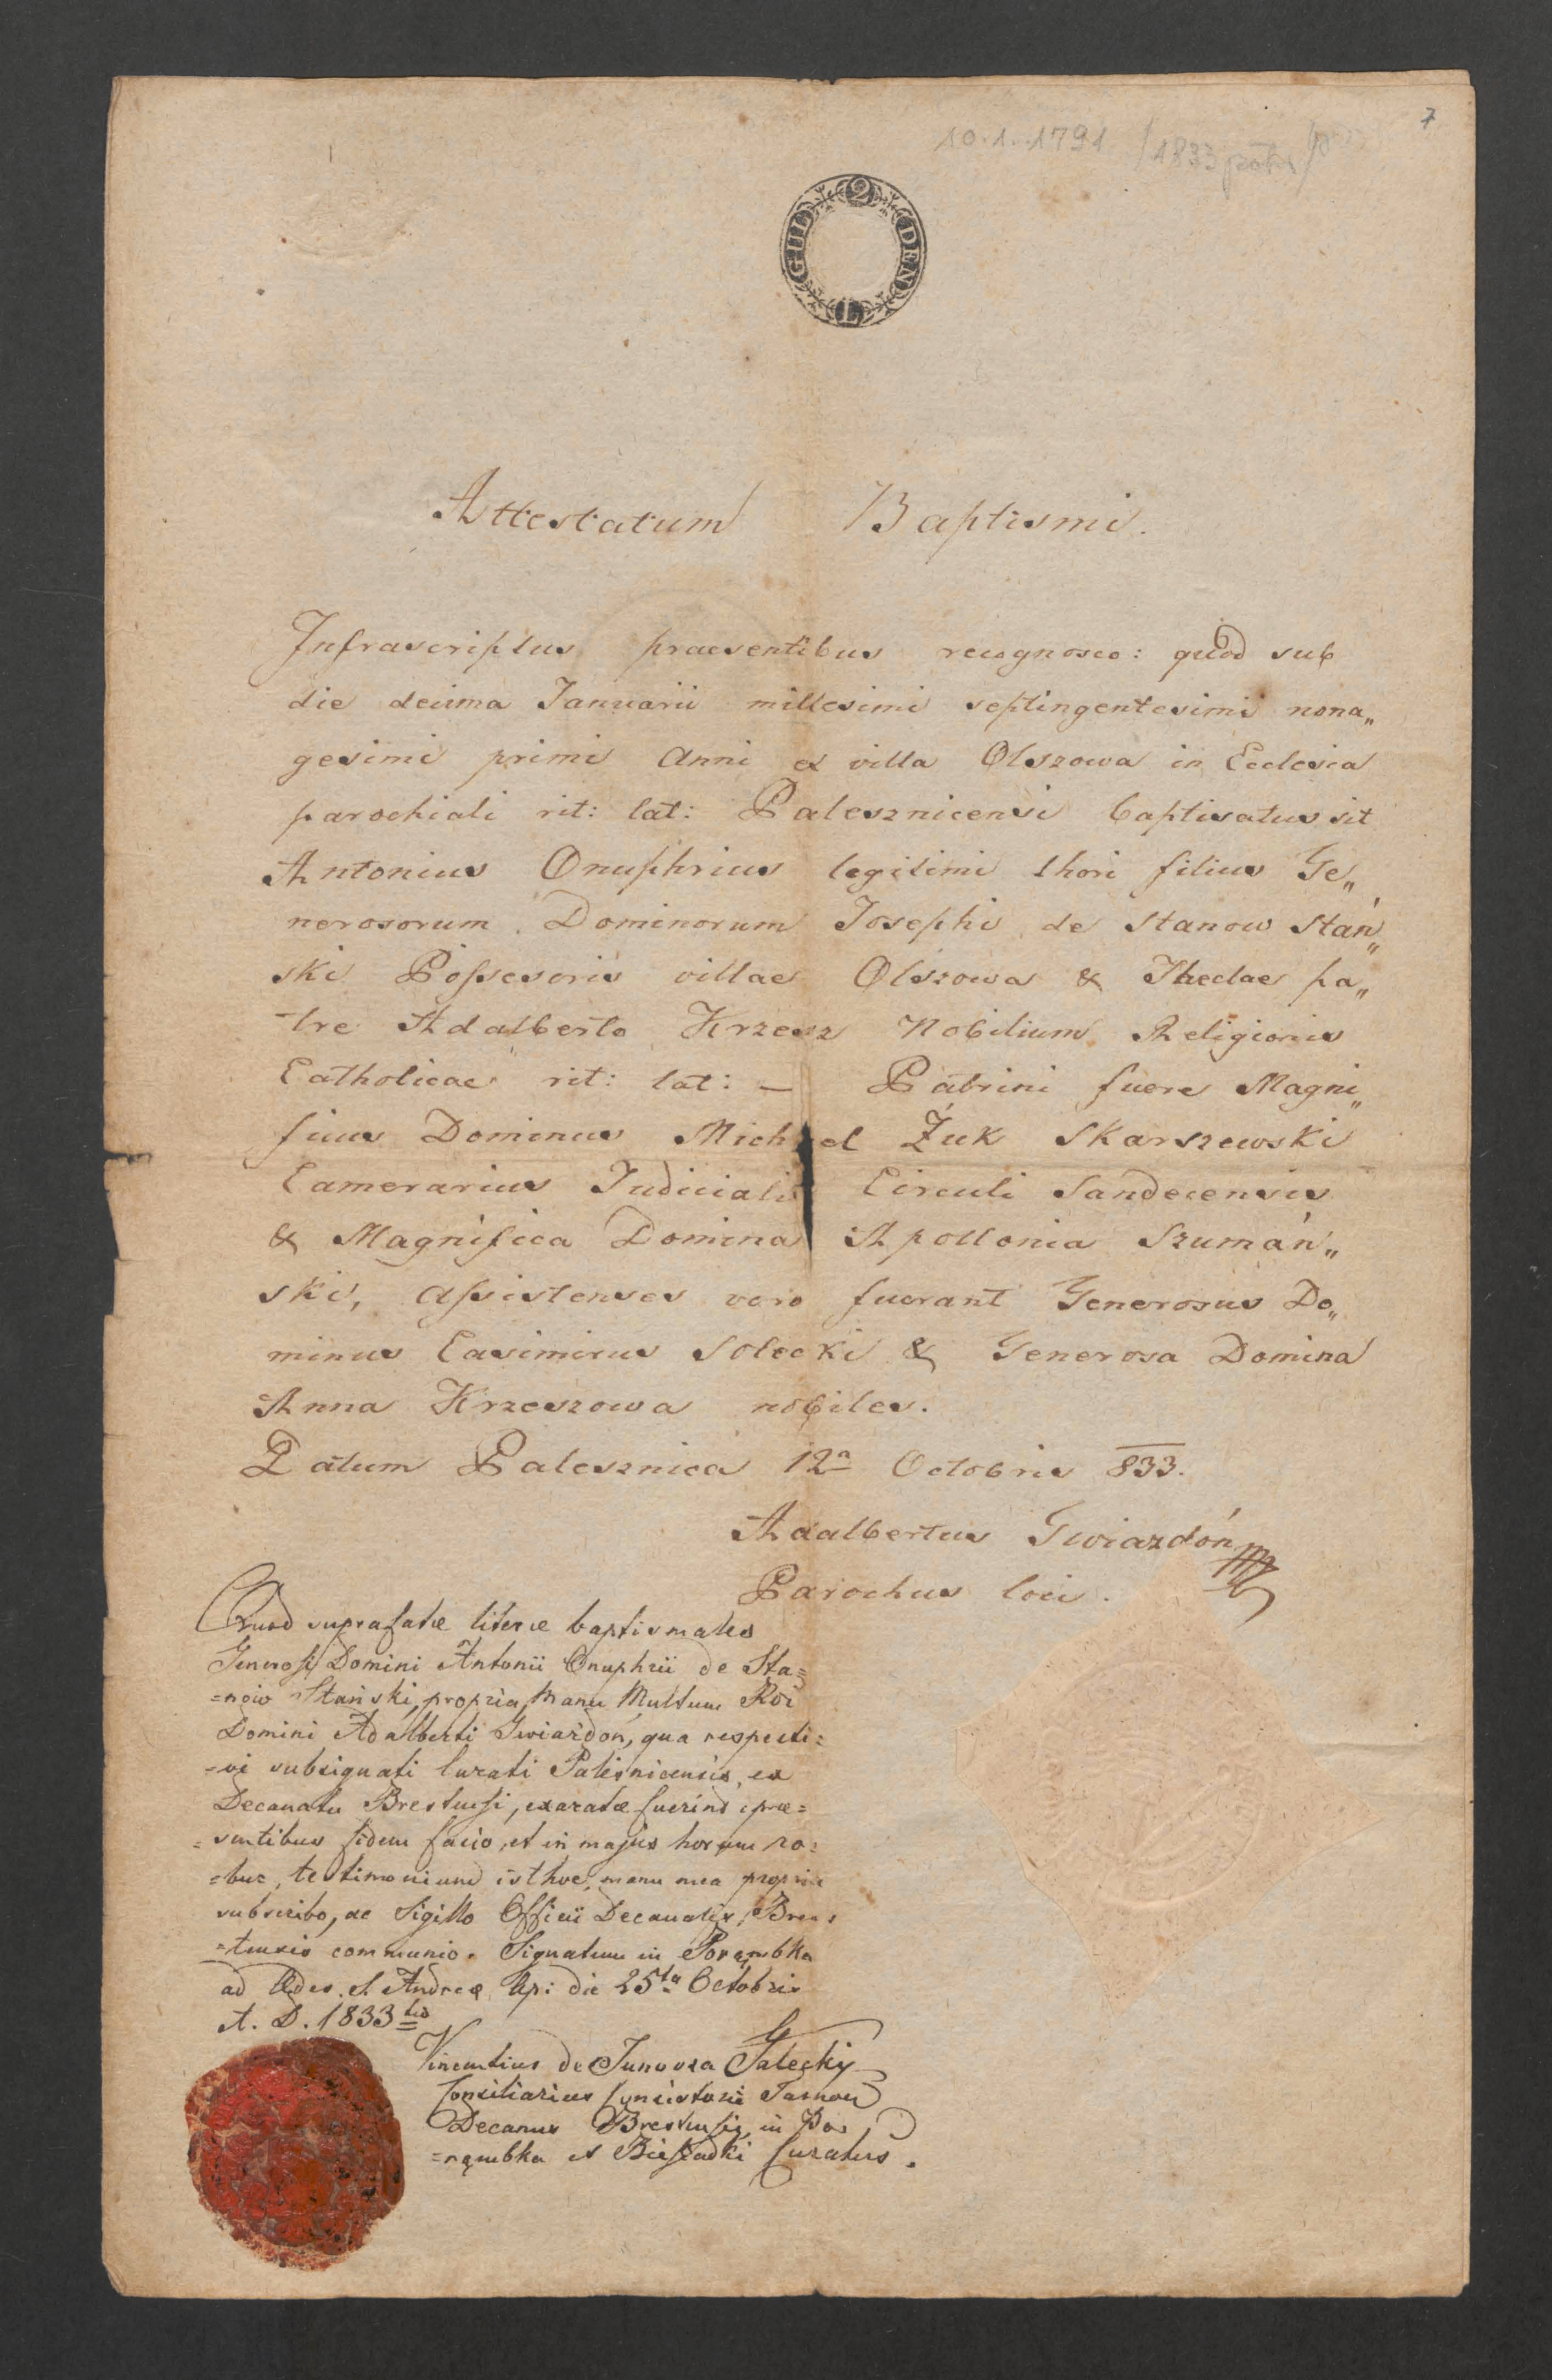 7
10.1.1791 /1833
2 GULDEN
Attestatum Baptismi.
Infrascriptus praesentibus recognosco: quod sub
die decima Januarii millesimi septingentesimi nona„
gesimi primi Anni ex villa Olszowa in Ecclesia
parochiali rit: lat: Palesznicensi baptisatus sit
Antonius Onuphrius legitimi thori filius Ge„
nerosorum Dominorum Josephi de Stanow Stań„
ski Possesoris villae Olszowa & Theclae pa„
tre Adalberto Krzesz Nobilium Religionis
Catholicae rit: lat: — Patrini fuere Magni„
ficus Dominus Michael Żuk Skarszewski
Camerarius Judicialis Circuli Sandecensis
& Magnifica Domina Apollonia Szumań„
ski, Assistenses vero fuerant Generosus Do„
minus Casimirus Solecki & Generosa Domina
Anna Krzeszowa nobiles.
Datum Palesznica 12a Octobris 833.
Adalbertus Gwiazdoń
Parochus loci.
Quod suprafatæ literæ baptismales
Generosi Domini Antonii Onuphrii de Sta=
=now Stański, propria Manu Multum Rdi
Domini Adalberti Gwiazdoń, qua respecti=
=vi subsignati Curati Palesnicensis, ex
Decanatu Brestensi, exaratæ fuerint, præ=
=sentibus fidem facio, et in majus horum ro=
=bur, testimonium isthoc, manu mea propria
subscribo, ac Sigillo Officii Decanalis Bres=
=tensis communio. Signatum in Porąmbka
ad Ædes S. Andreæ Ap: die 25ta Octobris
A. D. 1833tio
Vincentius de Junosza Gałecky
Consiliarius Consistorii Tarnov
Decanus Brestensis, in Po=
=rąmbka et Biesiadki Curatus.